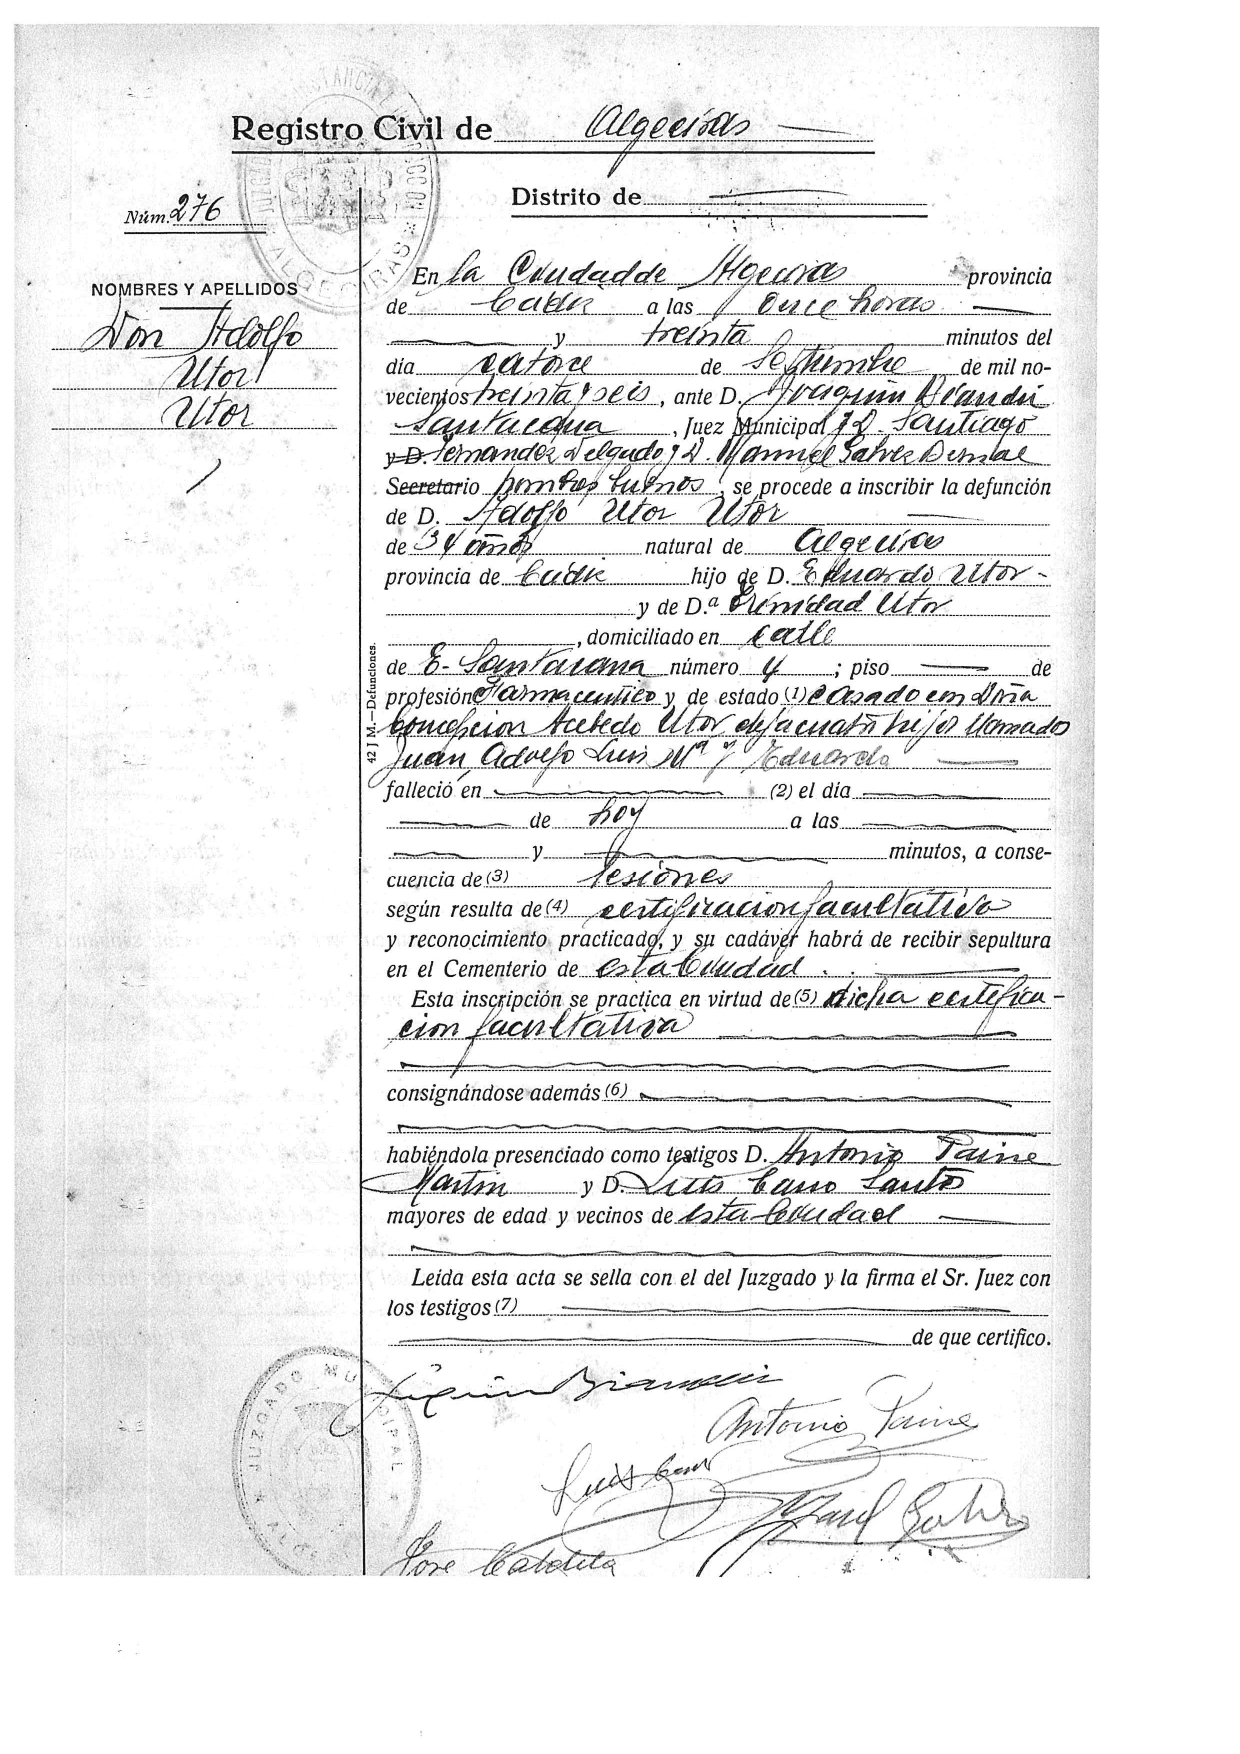 Registro Civil de Algeciras
Distrito de
Núm. 276
NOMBRES Y APELLIDOS
Don Adolfo
Utor
Utor
En la Ciudad de Algeciras provincia
de Cadiz a las Once horas
y treinta minutos del
día catorce de Septiembre de mil no-
vecientos treinta y seis, ante D. Joaquin
Santacana, Juez Municipal y D. Santiago
y D. Fernandez Delgado y D. Manuel Galvez Bernal
Secretario hombres buenos, se procede a inscribir la defunción
de D. Adolfo Utor Utor
de 34 años natural de Algeciras
provincia de Cadiz hijo de D. Eduardo Utor -
y de D.ª Trinidad Utor
, domiciliado en calle
de E. Santacana número 4 ; piso de
profesión Farmaceutico y de estado (1) casado con Doña
Concepcion Acebedo Utor deja cuatro hijos llamados
Juan, Adolfo Luis Mª y Eduardo
falleció en (2) el día
de hoy a las
y minutos, a conse-
cuencia de (3) lesiones
según resulta de (4) certificacion facultativa
y reconocimiento practicado, y su cadáver habrá de recibir sepultura
en el Cementerio de esta Ciudad.
Esta inscripción se practica en virtud de (5) dicha certifica-
cion facultativa
consignándose además (6)
habiéndola presenciado como testigos D. Antonio Paine
Martin y D. Luis Cano Santos
mayores de edad y vecinos de esta Ciudad
Leida esta acta se sella con el del Juzgado y la firma el Sr. Juez con
los testigos (7)
de que certifico.
42 J M.—Defunciones.
Antonio Paine
Luis Cano
JUZGADO MUNICIPAL
Jose